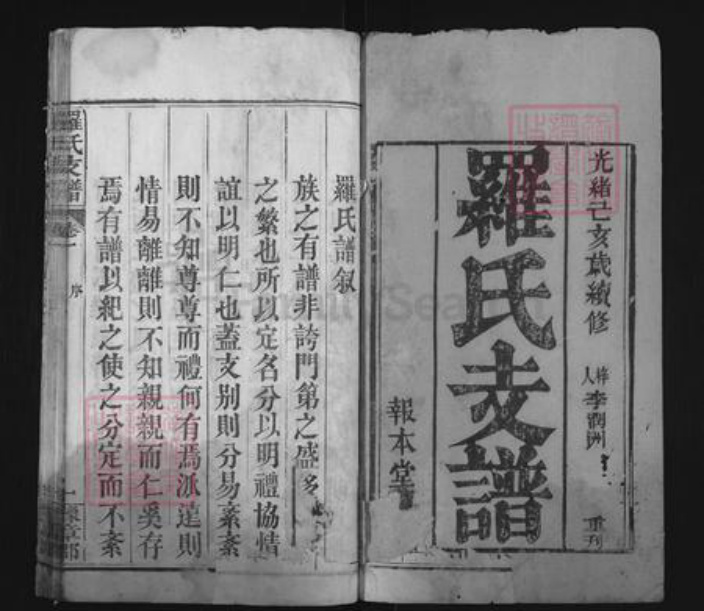 光緒己亥歲續修
梓人李潤洲
重刊
羅氏支譜
報本堂
羅氏譜叙
族之有譜非誇門第之盛
之繁也所以定名分以明禮協情
誼以明仁也蓋支别則分易紊紊
則不知尊尊而禮何有焉派遠則
情易離離則不知親親而仁奚存
焉有譜以紀之使之分定而不紊
羅氏支譜
卷一
序
一
豫章郡
FamilySearch